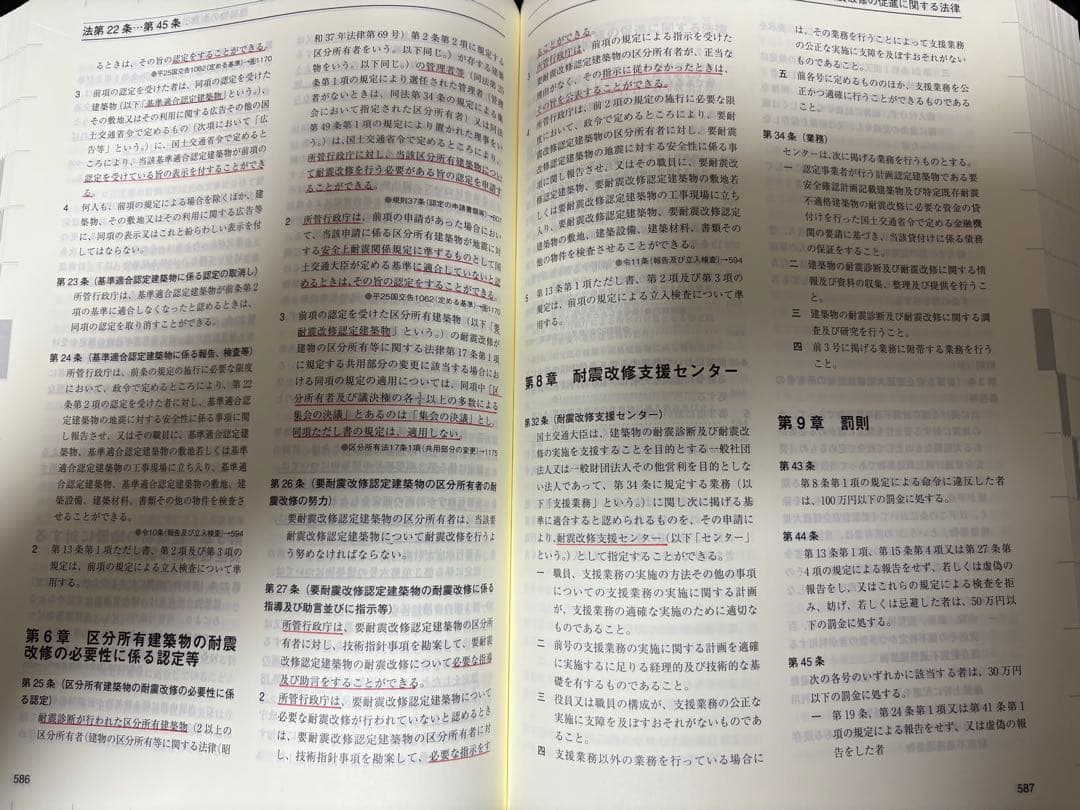 法第22条…第45条
るときは、その旨の認定をすることができる。
●平25国交告1062(定める基準)→面1170
3 前項の認定を受けた者は、同項の認定を受けた
建築物(以下「基準適合認定建築物」という。)、
その敷地又はその利用に関する広告その他の国
土交通省令で定めるもの(次項において「広
告等」という。)に、国土交通省令で定めると
ころにより、当該基準適合認定建築物が前項の
認定を受けている旨の表示を付することができ
る。
4 何人も、前項の規定による場合を除くほか、建
築物、その敷地又はその利用に関する広告等
に、同項の表示又はこれと紛らわしい表示を付
してはならない。
第23条(基準適合認定建築物に係る認定の取消し)
所管行政庁は、基準適合認定建築物が前条第2
項の基準に適合しなくなったと認めるときは、
同項の認定を取り消すことができる。
第24条(基準適合認定建築物に係る報告、検査等)
所管行政庁は、前条の規定の施行に必要な限度
において、政令で定めるところにより、第22
条第2項の認定を受けた者に対し、基準適合認
定建築物の地震に対する安全性に係る事項に関
し報告させ、又はその職員に、基準適合認定建
築物、基準適合認定建築物の敷地若しくは基準
適合認定建築物の工事現場に立ち入り、基準適
合認定建築物、基準適合認定建築物の敷地、建
築設備、建築材料、書類その他の物件を検査さ
せることができる。
●令10条(報告及び立入検査)→594
2 第13条第1項ただし書、第2項及び第3項の
規定は、前項の規定による立入検査について準
用する。
第6章 区分所有建築物の耐震
改修の必要性に係る認定等
第25条(区分所有建築物の耐震改修の必要性に係
る認定)
耐震診断が行われた区分所有建築物(2以上の
区分所有者(建物の区分所有等に関する法律(昭
586
和37年法律第69号)第2条第2項に規定する
区分所有者をいう。以下同じ。)が存する建築
物をいう。以下同じ。)の管理者等(同法第25
条第1項の規定により選任された管理者(管理
者がないときは、同法第34条の規定による集
会において指定された区分所有者)又は同法
第49条第1項の規定により置かれた理事をい
う。)は、国土交通省令で定めるところにより、
所管行政庁に対し、当該区分所有建築物につい
て耐震改修を行う必要がある旨の認定を申請す
ることができる。
●規則37条(認定の申請書類等)→607
2 所管行政庁は、前項の申請があった場合におい
て、当該申請に係る区分所有建築物が地震に対
する安全上耐震関係規定に準ずるものとして国
土交通大臣が定める基準に適合していないと認
めるときは、その旨の認定をすることができる。
●平25国交告1062(定める基準)→面1170
3 前項の認定を受けた区分所有建築物(以下「要
耐震改修認定建築物」という。)の耐震改修が
建物の区分所有等に関する法律第17条第1項
に規定する共用部分の変更に該当する場合にお
ける同項の規定の適用については、同項中「区
分所有者及び議決権の各 以上の多数による
集会の決議」とあるのは「集会の決議」とし、
同項ただし書の規定は、適用しない。
●区分所有法17条1項(共用部分の変更)→1175
第26条(要耐震改修認定建築物の区分所有者の耐
震改修の努力)
要耐震改修認定建築物の区分所有者は、当該要
耐震改修認定建築物について耐震改修を行うよ
う努めなければならない。
第27条(要耐震改修認定建築物の耐震改修に係る
指導及び助言並びに指示等)
所管行政庁は、要耐震改修認定建築物の区分所
有者に対し、技術指針事項を勘案して、要耐震
改修認定建築物の耐震改修について必要な指導
及び助言をすることができる。
2 所管行政庁は、要耐震改修認定建築物について
必要な耐震改修が行われていないと認めるとき
は、要耐震改修認定建築物の区分所有者に対
し、技術指針事項を勘案して、必要な指示をす
震改修の促進に関する法律
ることができる。
所管行政庁は、前項の規定による指示を受けた
要耐震改修認定建築物の区分所有者が、正当な
理由がなく、その指示に従わなかったときは、
その旨を公表することができる。
4 所管行政庁は、前2項の規定の施行に必要な限
度において、政令で定めるところにより、要耐
震改修認定建築物の区分所有者に対し、要耐震
改修認定建築物の地震に対する安全性に係る事
項に関し報告させ、又はその職員に、要耐震改
修認定建築物、要耐震改修認定建築物の敷地若
しくは要耐震改修認定建築物の工事現場に立ち
入り、要耐震改修認定建築物、要耐震改修認定
建築物の敷地、建築設備、建築材料、書類その
他の物件を検査させることができる。
●令11条(報告及び立入検査)→594
5 第13条第1項ただし書、第2項及び第3項の
規定は、前項の規定による立入検査について準
用する。
第8章 耐震改修支援センター
第32条(耐震改修支援センター)
国土交通大臣は、建築物の耐震診断及び耐震改
修の実施を支援することを目的とする一般社団
法人又は一般財団法人その他営利を目的としな
い法人であって、第34条に規定する業務(以
下「支援業務」という。)に関し次に掲げる基
準に適合すると認められるものを、その申請に
より、耐震改修支援センター(以下「センター」
という。)として指定することができる。
一 職員、支援業務の実施の方法その他の事項
についての支援業務の実施に関する計画
が、支援業務の適確な実施のために適切な
ものであること。
二 前号の支援業務の実施に関する計画を適確
に実施するに足りる経理的及び技術的な基
礎を有するものであること。
三 役員又は職員の構成が、支援業務の公正な
実施に支障を及ぼすおそれがないものであ
ること。
四 支援業務以外の業務を行っている場合に
は、その業務を行うことによって支援業務
の公正な実施に支障を及ぼすおそれがない
ものであること。
五 前各号に定めるもののほか、支援業務を公
正かつ適確に行うことができるものである
こと。
第34条(業務)
センターは、次に掲げる業務を行うものとする。
一 認定事業者が行う計画認定建築物である要
安全確認計画記載建築物及び特定既存耐震
不適格建築物の耐震改修に必要な資金の貸
付けを行った国土交通省令で定める金融機
関の要請に基づき、当該貸付けに係る債務
の保証をすること。
二 建築物の耐震診断及び耐震改修に関する情
報及び資料の収集、整理及び提供を行うこ
と。
三 建築物の耐震診断及び耐震改修に関する調
査及び研究を行うこと。
四 前3号に掲げる業務に附帯する業務を行う
こと。
第9章 罰則
第43条
第8条第1項の規定による命令に違反した者
は、100万円以下の罰金に処する。
第44条
第13条第1項、第15条第4項又は第27条第
4項の規定による報告をせず、若しくは虚偽の
報告をし、又はこれらの規定による検査を拒
み、妨げ、若しくは忌避した者は、50万円以
下の罰金に処する。
第45条
次の各号のいずれかに該当する者は、30万円
以下の罰金に処する。
一 第19条、第24条第1項又は第41条第1
項の規定による報告をせず、又は虚偽の報
告をした者
587